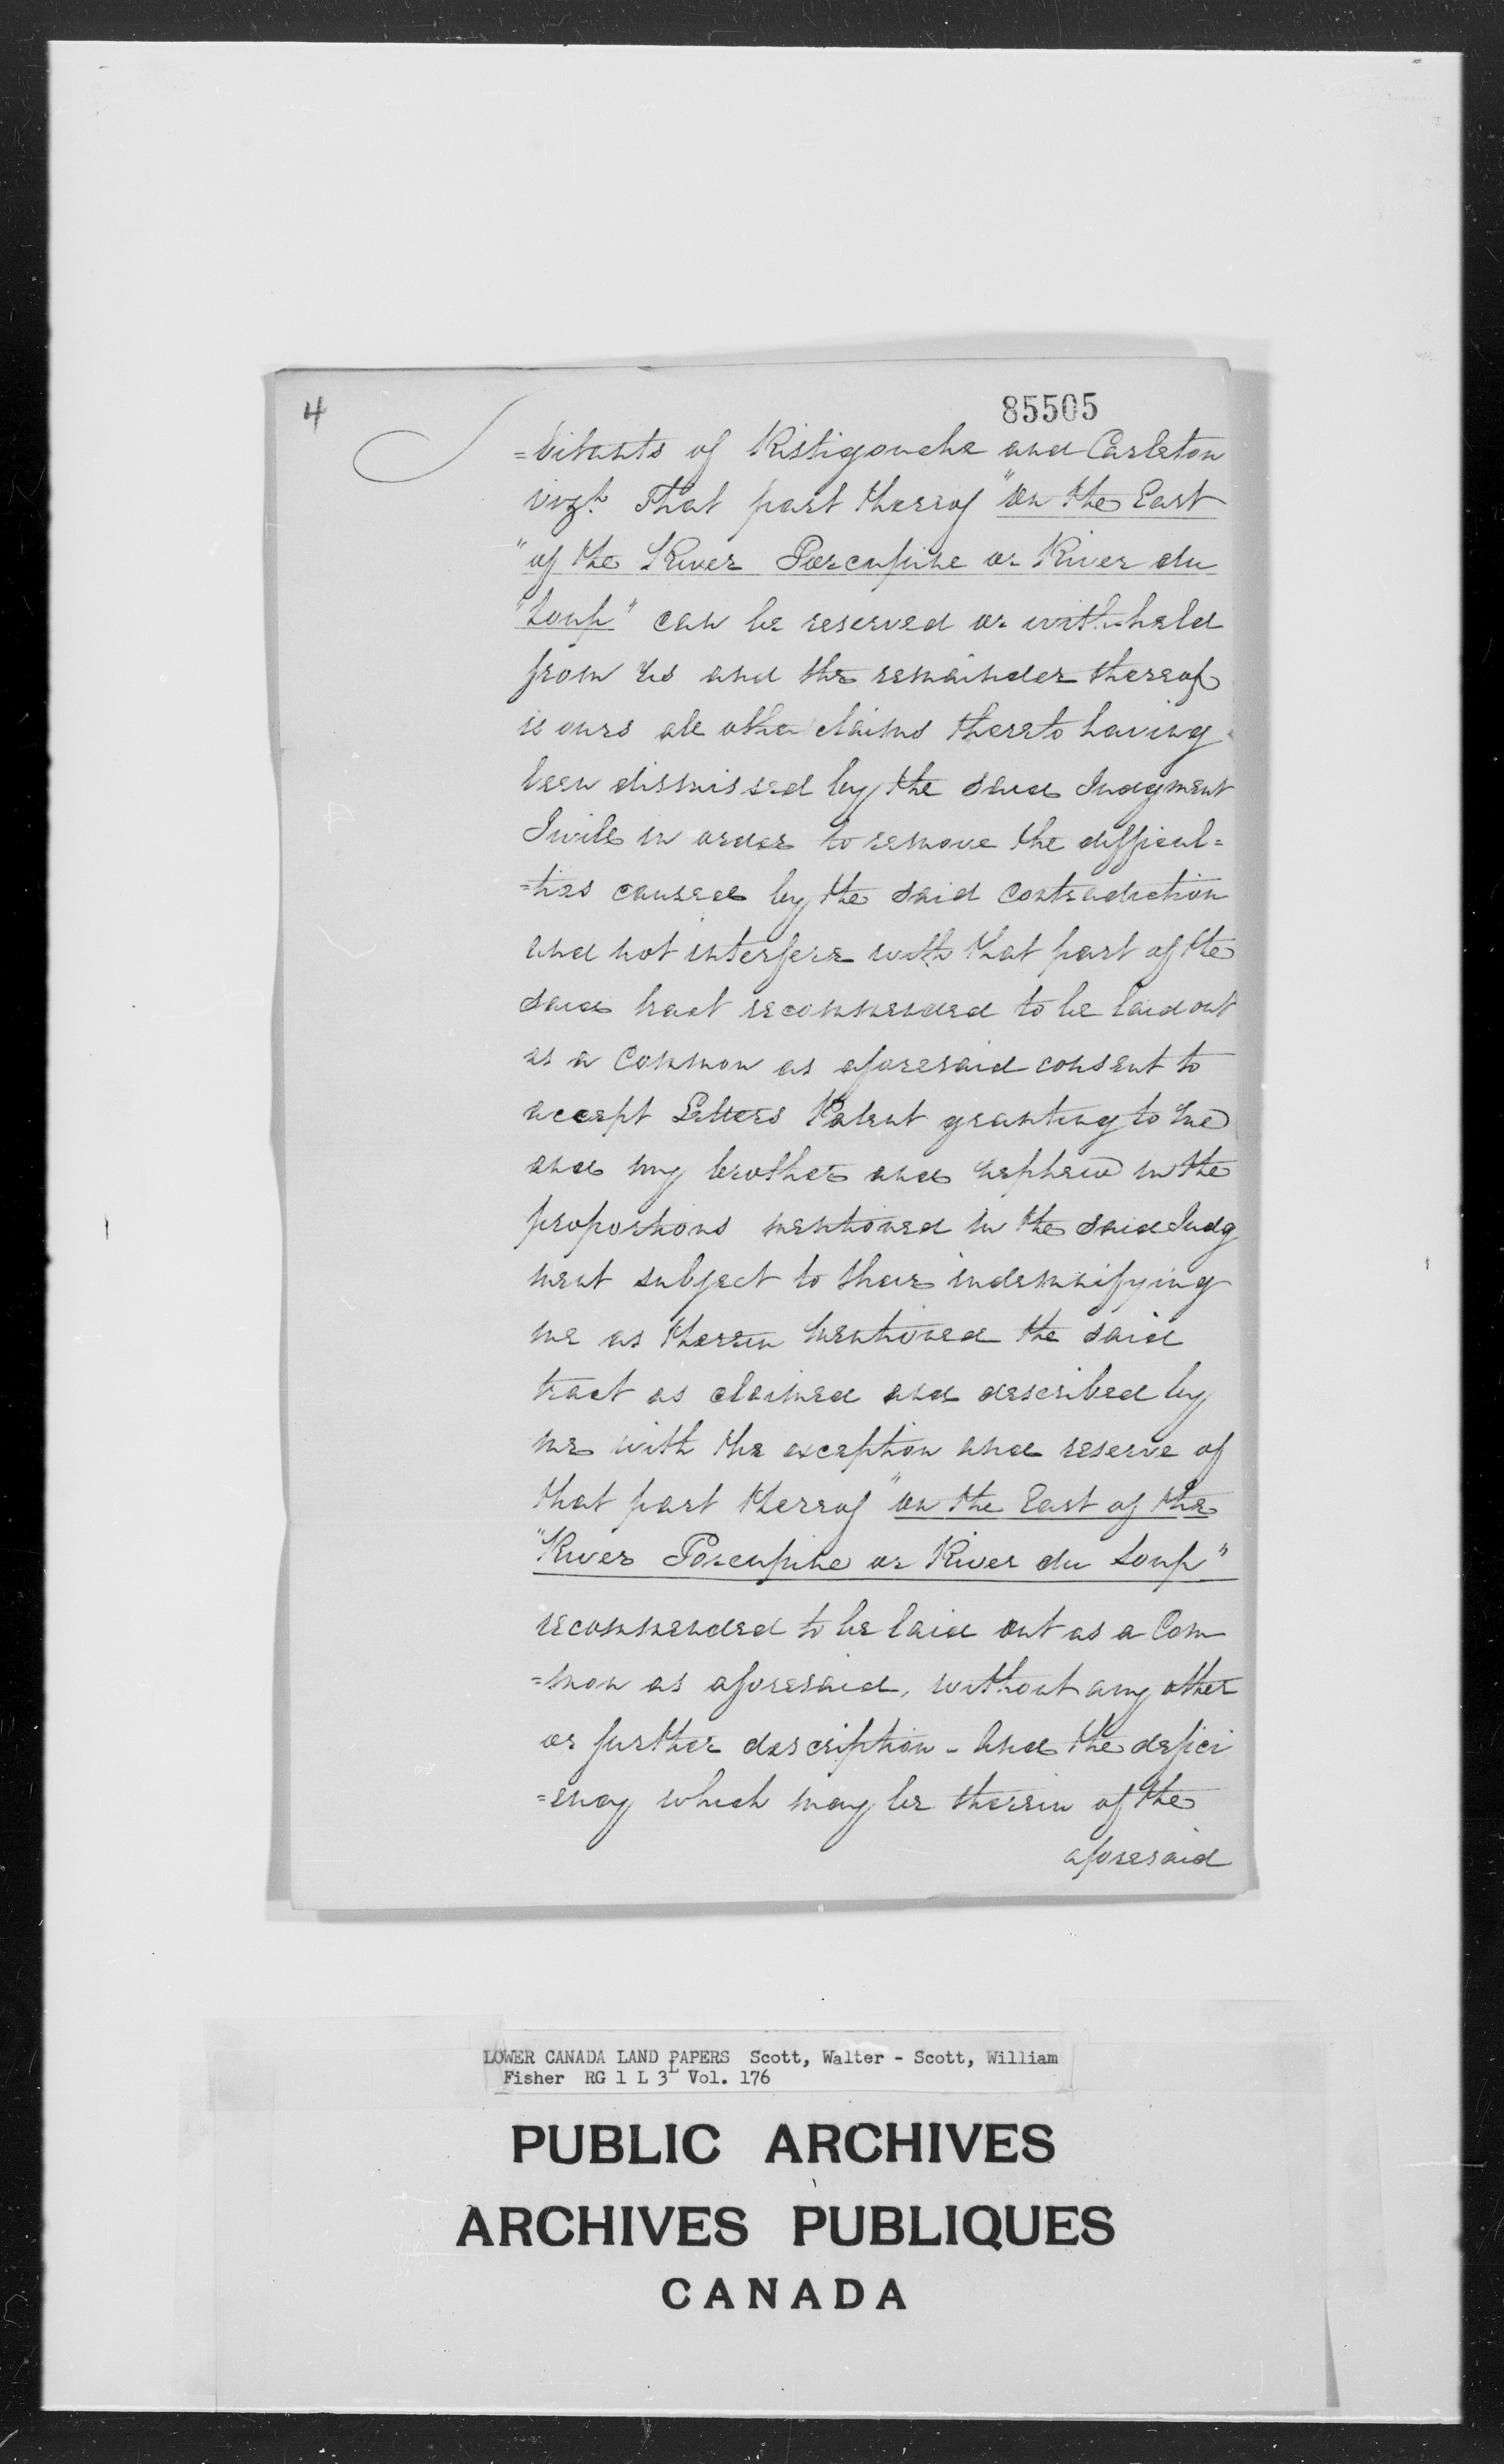 4
85505
=bitants of Ristigouche and Carleton
vizt. That part thereof "on the East
"of the River Porcupine or River du
"Loup" can be reserved or withheld
from us and the remainder thereof
is ours all other claims thereto having
been dismissed by the said Judgment
I will in order to remove the difficul=
=ties caused by the said contradiction
and not interfere with that part of the
said tract recommended to be laid out
as a Common as aforesaid consent to
accept Letters Patent granting to me
and my brother and nephew in the
proportions mentioned in the said Judg
ment subject to their indemnifying
me as therein mentioned the said
tract as claimed and described by
me with the exception and reserve of
that part thereof "on the East of the
"River Porcupine or River du Loup"
recommended to be laid out as a Com
=mon as aforesaid, without any other
or further description - And the defici
=ency which may be therein of the
aforesaid
LOWER CANADA LAND PAPERS Scott, Walter - Scott, William
Fisher RG 1 L 3L Vol. 176
PUBLIC ARCHIVES
ARCHIVES PUBLIQUES
CANADA